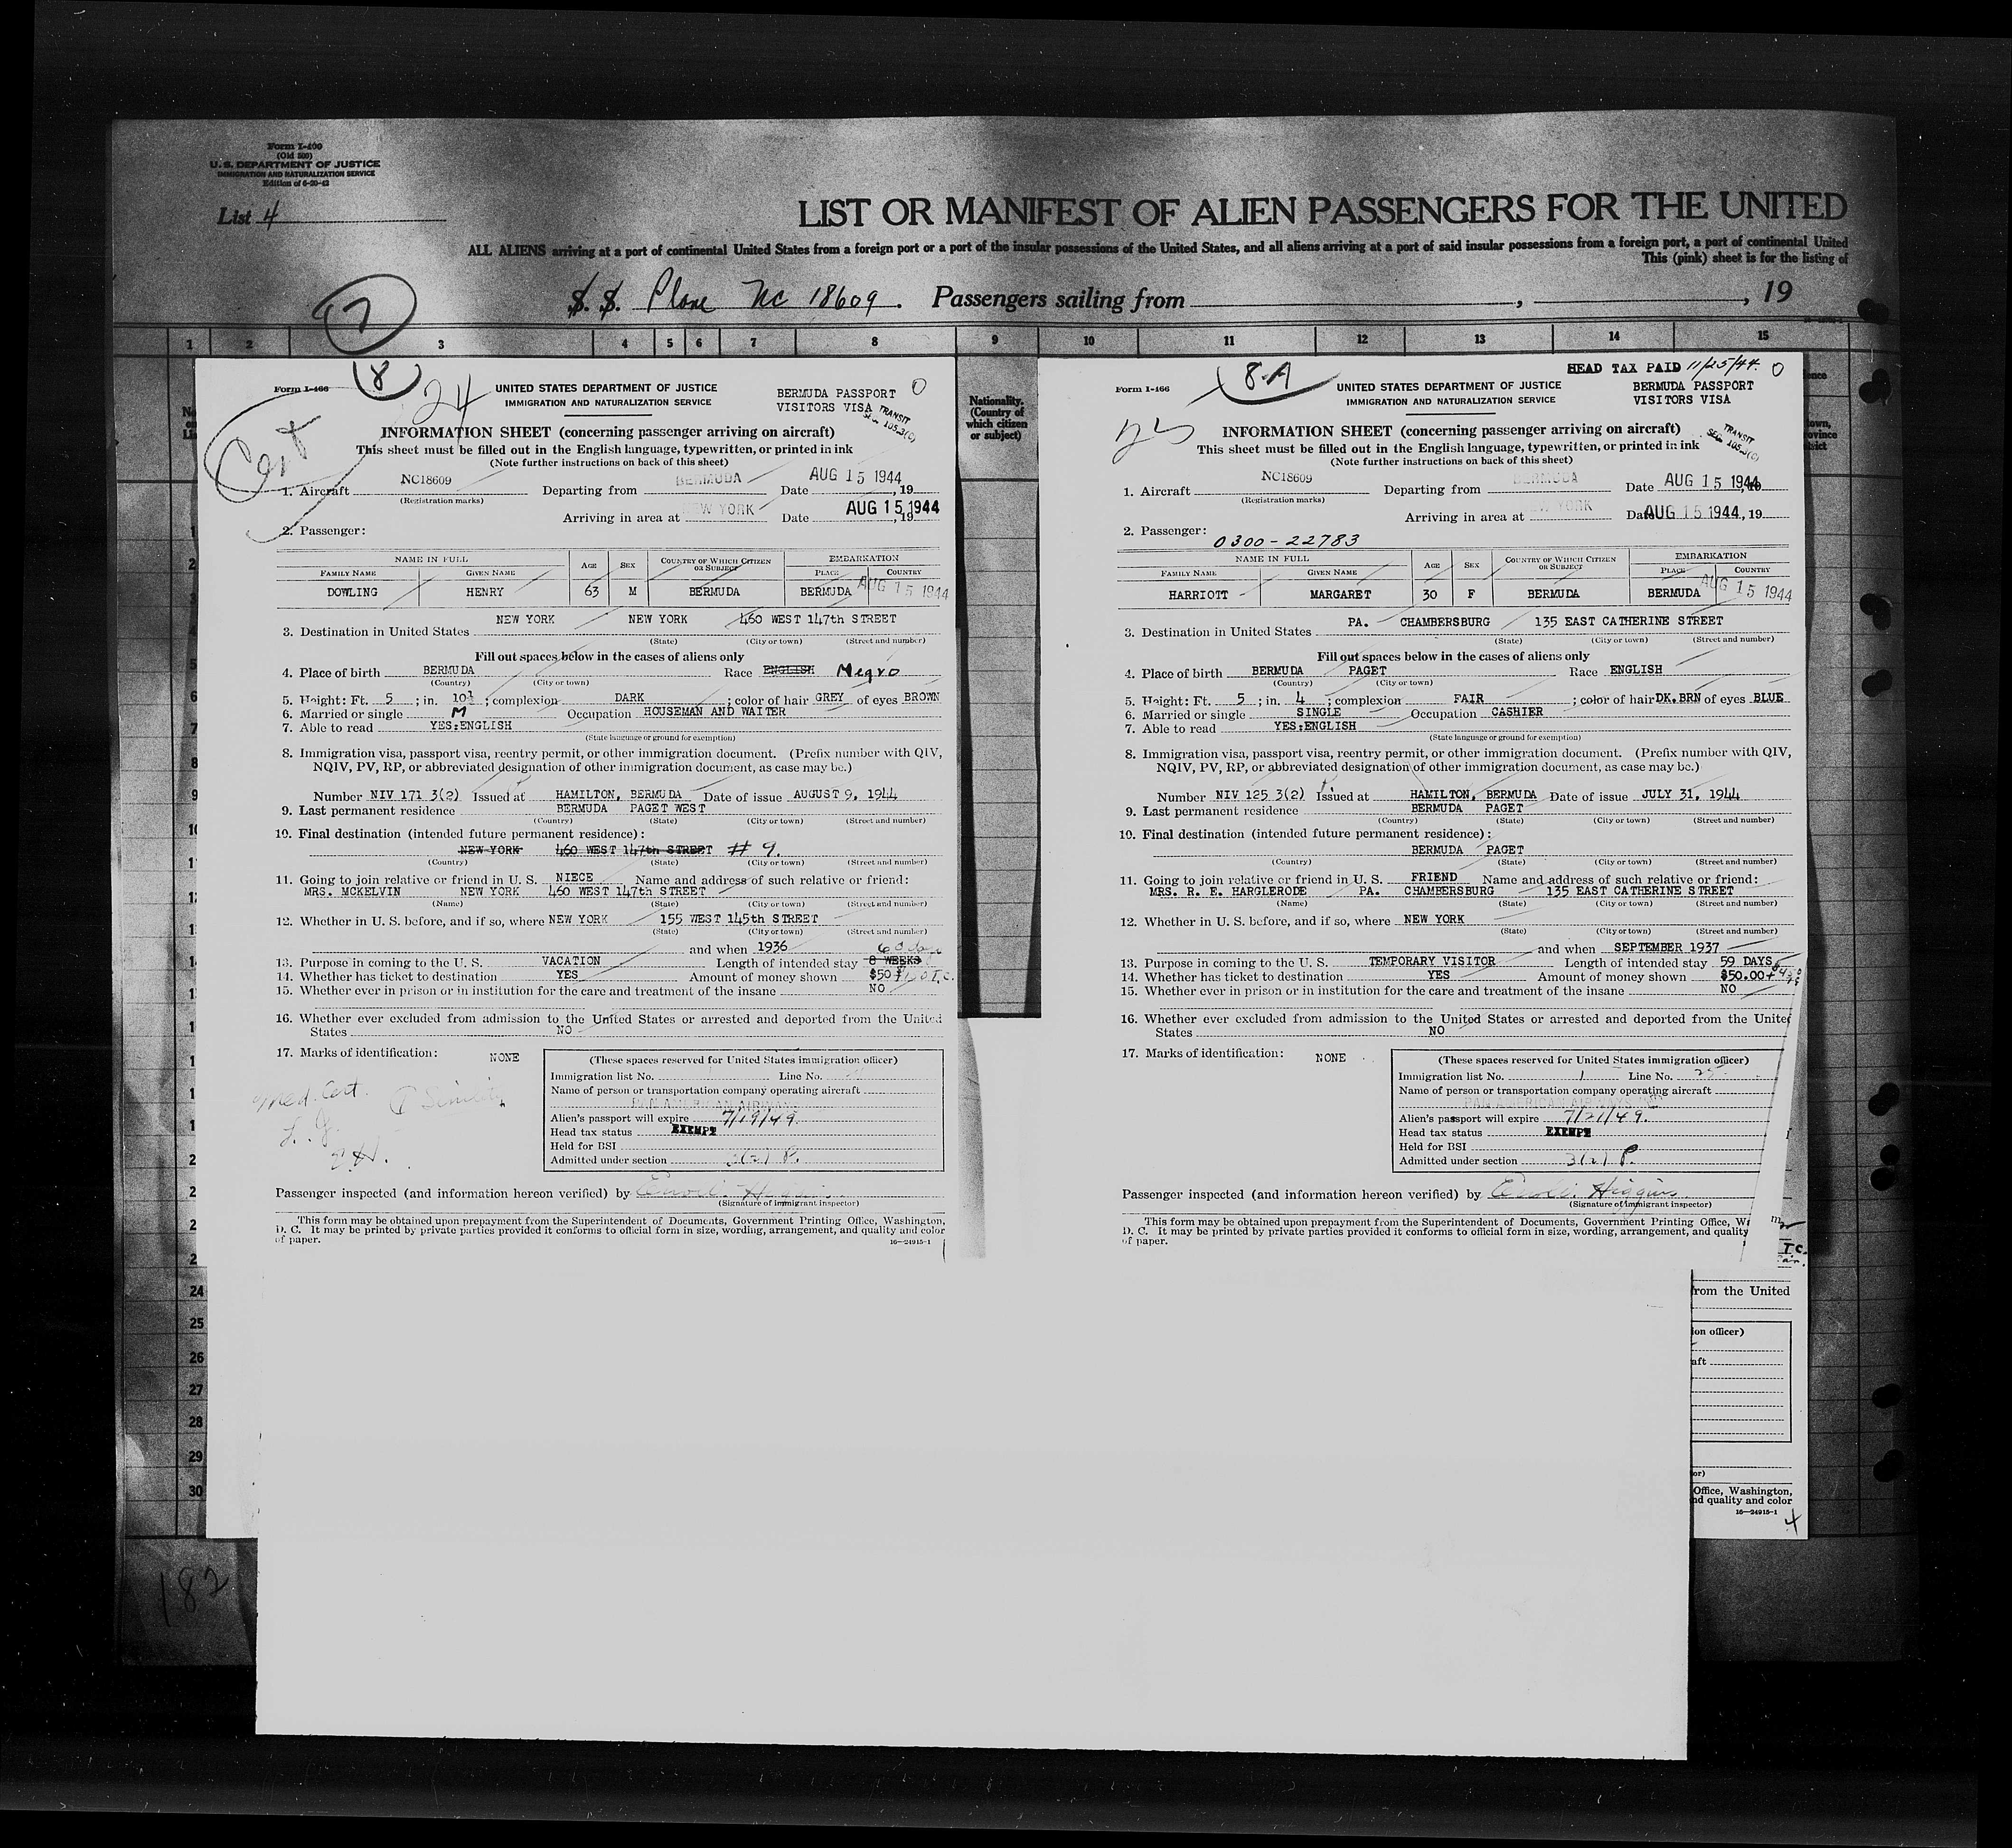 Form I-400
(Old 500)
U. S. DEPARTMENT OF JUSTICE
IMMIGRATION AND NATURALIZATION SERVICE
Edition of 6-20-42
List 4
LIST OR MANIFEST OF ALIEN PASSENGERS FOR THE UNITED
ALL ALIENS arriving at a port of continental United States from a foreign port or a port of the insular possessions of the United States, and all aliens arriving at a port of said insular possessions from a foreign port, a port of continental United
This (pink) sheet is for the listing of
7
S. S. Plane NC 18609. Passengers sailing from , , 19
1 2 3 4 5 6 7 8 9 10 11 12 13 14 15
Nationality. (Country of which citizen or subject)
Form I-466
8
24
Cert
UNITED STATES DEPARTMENT OF JUSTICE
IMMIGRATION AND NATURALIZATION SERVICE
BERMUDA PASSPORT 0
VISITORS VISA
TRANSIT
SEC 105.3(c)
INFORMATION SHEET (concerning passenger arriving on aircraft)
This sheet must be filled out in the English language, typewritten, or printed in ink
(Note further instructions on back of this sheet)
1. Aircraft NC18609 Departing from BERMUDA Date AUG 15 1944, 19
(Registration marks)
Arriving in area at NEW YORK Date AUG 15 1944, 19
2. Passenger:
NAME IN FULL AGE SEX COUNTRY OF WHICH CITIZEN OR SUBJECT EMBARKATION
FAMILY NAME GIVEN NAME PLACE COUNTRY
DOWLING HENRY 63 M BERMUDA BERMUDA AUG 15 1944
3. Destination in United States NEW YORK NEW YORK 460 WEST 147th STREET
(State) (City or town) (Street and number)
Fill out spaces below in the cases of aliens only
4. Place of birth BERMUDA Race ENGLISH Negro
(Country) (City or town)
5. Height: Ft. 5; in. 10½; complexion DARK; color of hair GREY of eyes BROWN
6. Married or single M Occupation HOUSEMAN AND WAITER
7. Able to read YES:ENGLISH
(State language or ground for exemption)
8. Immigration visa, passport visa, reentry permit, or other immigration document. (Prefix number with QIV,
NQIV, PV, RP, or abbreviated designation of other immigration document, as case may be.)
Number NIV 171 3(2) Issued at HAMILTON, BERMUDA Date of issue AUGUST 9, 1944
9. Last permanent residence BERMUDA PAGET WEST
(Country) (State) (City or town) (Street and number)
10. Final destination (intended future permanent residence):
NEW YORK 460 WEST 147th STREET # 9.
(Country) (State) (City or town) (Street and number)
11. Going to join relative or friend in U. S. NIECE Name and address of such relative or friend:
MRS. MCKELVIN NEW YORK 460 WEST 147th STREET
(Name) (State) (City or town) (Street and number)
12. Whether in U. S. before, and if so, where NEW YORK 155 WEST 145th STREET
(State) (City or town) (Street and number)
and when 1936 60 days
13. Purpose in coming to the U. S. VACATION Length of intended stay 8 WEEKS
14. Whether has ticket to destination YES Amount of money shown $50
15. Whether ever in prison or in institution for the care and treatment of the insane NO
16. Whether ever excluded from admission to the United States or arrested and deported from the United
States NO
17. Marks of identification: NONE
Med. Cert.
(These spaces reserved for United States immigration officer)
Immigration list No. Line No.
Name of person or transportation company operating aircraft
PAN AMERICAN AIRWAYS
Alien's passport will expire 7/19/49
Head tax status EXEMPT
Held for BSI
Admitted under section 3(2) P.
Passenger inspected (and information hereon verified) by
(Signature of immigrant inspector)
This form may be obtained upon prepayment from the Superintendent of Documents, Government Printing Office, Washington,
D. C. It may be printed by private parties provided it conforms to official form in size, wording, arrangement, and quality and color
of paper. 16—24915-1
HEAD TAX PAID 11/25/44. 0
Form I-466
8-A
25
UNITED STATES DEPARTMENT OF JUSTICE
IMMIGRATION AND NATURALIZATION SERVICE
BERMUDA PASSPORT
VISITORS VISA
TRANSIT
SEC. 105.3(c)
INFORMATION SHEET (concerning passenger arriving on aircraft)
This sheet must be filled out in the English language, typewritten, or printed in ink
(Note further instructions on back of this sheet)
1. Aircraft NC18609 Departing from BERMUDA Date AUG 15 1944
(Registration marks)
Arriving in area at NEW YORK Date AUG 15 1944, 19
2. Passenger: 0300-22783
NAME IN FULL AGE SEX COUNTRY OF WHICH CITIZEN OR SUBJECT EMBARKATION
FAMILY NAME GIVEN NAME PLACE COUNTRY
HARRIOTT MARGARET 30 F BERMUDA BERMUDA AUG 15 1944
3. Destination in United States PA. CHAMBERSBURG 135 EAST CATHERINE STREET
(State) (City or town) (Street and number)
Fill out spaces below in the cases of aliens only
4. Place of birth BERMUDA PAGET Race ENGLISH
(Country) (City or town)
5. Height: Ft. 5; in. 4; complexion FAIR; color of hair DK. BRN of eyes BLUE
6. Married or single SINGLE Occupation CASHIER
7. Able to read YES:ENGLISH
(State language or ground for exemption)
8. Immigration visa, passport visa, reentry permit, or other immigration document. (Prefix number with QIV,
NQIV, PV, RP, or abbreviated designation of other immigration document, as case may be.)
Number NIV 125 3(2) Issued at HAMILTON, BERMUDA Date of issue JULY 31, 1944
9. Last permanent residence BERMUDA PAGET
(Country) (State) (City or town) (Street and number)
10. Final destination (intended future permanent residence):
BERMUDA PAGET
(Country) (State) (City or town) (Street and number)
11. Going to join relative or friend in U. S. FRIEND Name and address of such relative or friend:
MRS. R. E. HARGLERODE PA. CHAMBERSBURG 135 EAST CATHERINE STREET
(Name) (State) (City or town) (Street and number)
12. Whether in U. S. before, and if so, where NEW YORK
(State) (City or town) (Street and number)
and when SEPTEMBER 1937
13. Purpose in coming to the U. S. TEMPORARY VISITOR Length of intended stay 59 DAYS
14. Whether has ticket to destination YES Amount of money shown $50.00+
15. Whether ever in prison or in institution for the care and treatment of the insane NO
16. Whether ever excluded from admission to the United States or arrested and deported from the United
States NO
17. Marks of identification: NONE
(These spaces reserved for United States immigration officer)
Immigration list No. 1 Line No. 25
Name of person or transportation company operating aircraft
PAN AMERICAN AIRWAYS
Alien's passport will expire 7/21/49.
Head tax status EXEMPT
Held for BSI
Admitted under section 3(2) P.
Passenger inspected (and information hereon verified) by Higgins
(Signature of immigrant inspector)
This form may be obtained upon prepayment from the Superintendent of Documents, Government Printing Office, W
D. C. It may be printed by private parties provided it conforms to official form in size, wording, arrangement, and quality
of paper.
24
25
26
27
28
29
30
from the United
ion officer)
aft
or)
Office, Washington,
nd quality and color
16—24915-1
4
182